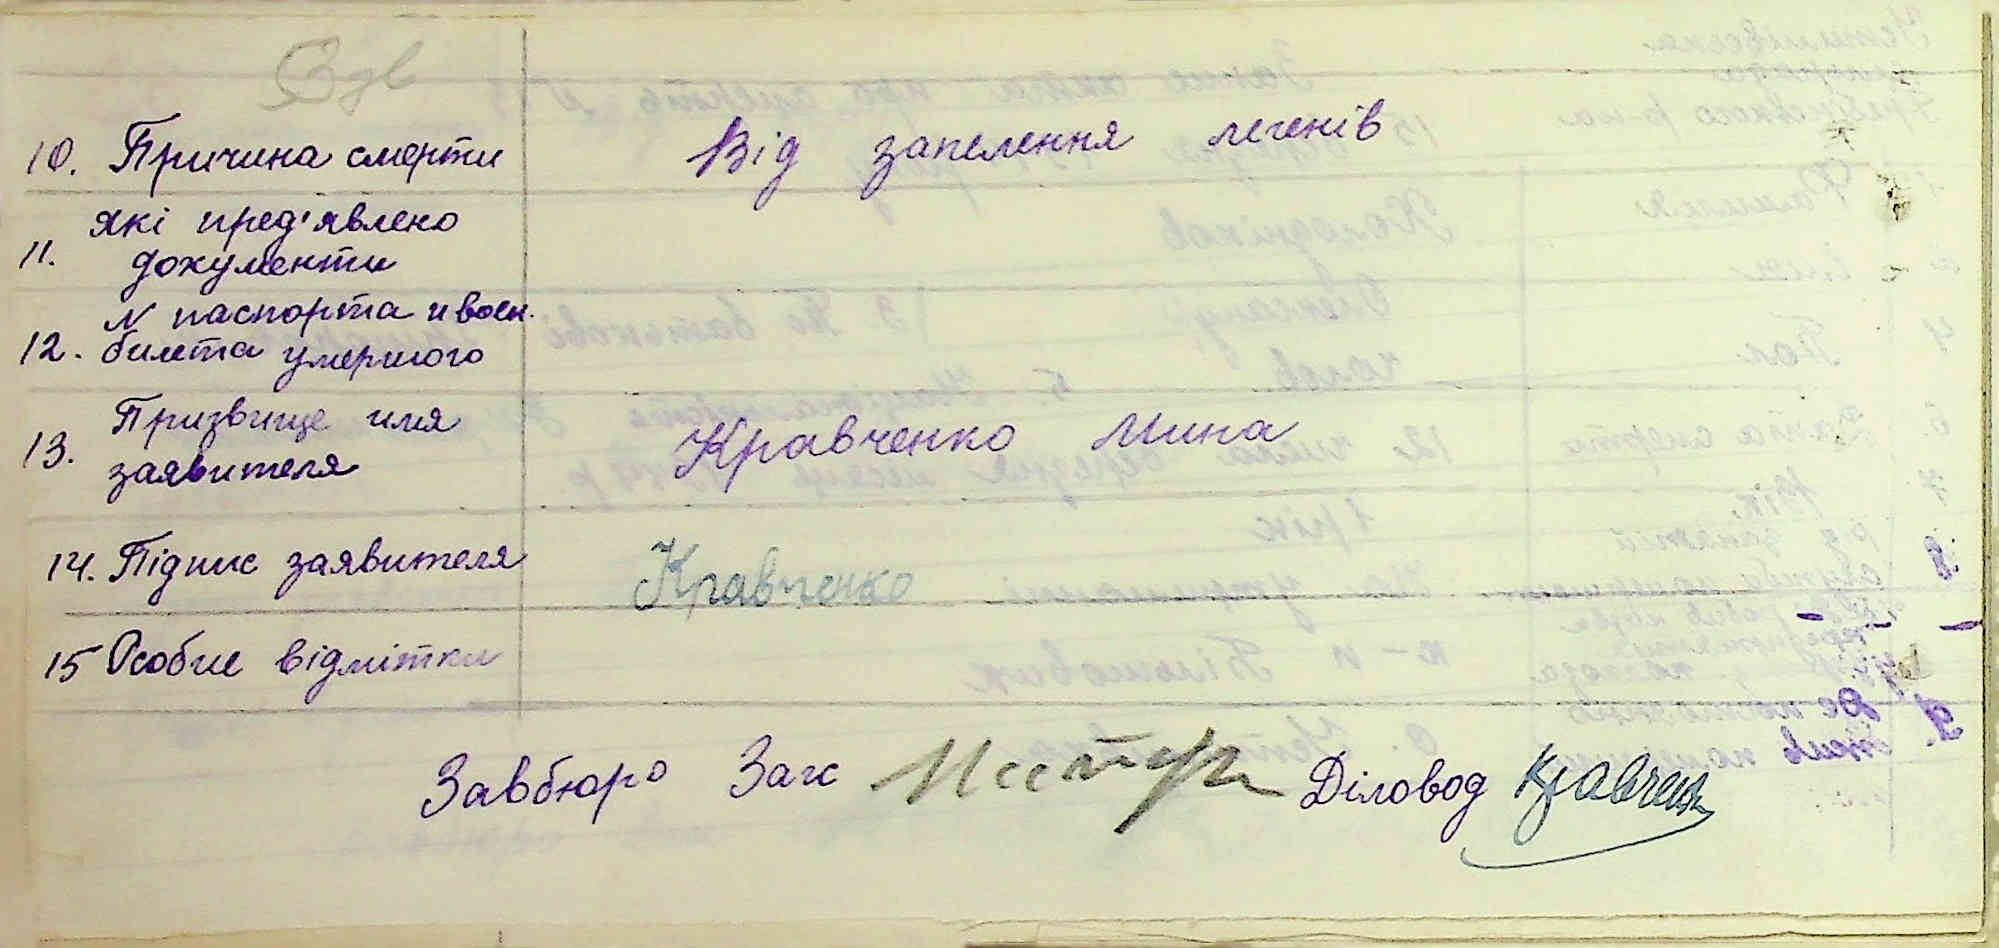 3зв
10. Причина смерти Від запелення легенів
які пред'явлено
11. документи
N паспорта и воен.
12. билета умершого
Призвище имя
13. заявителя Кравченко Мина
14. Підпис заявителя Кравченко
15 Особие відмітки
Завбюро Загс Діловод Кравченк